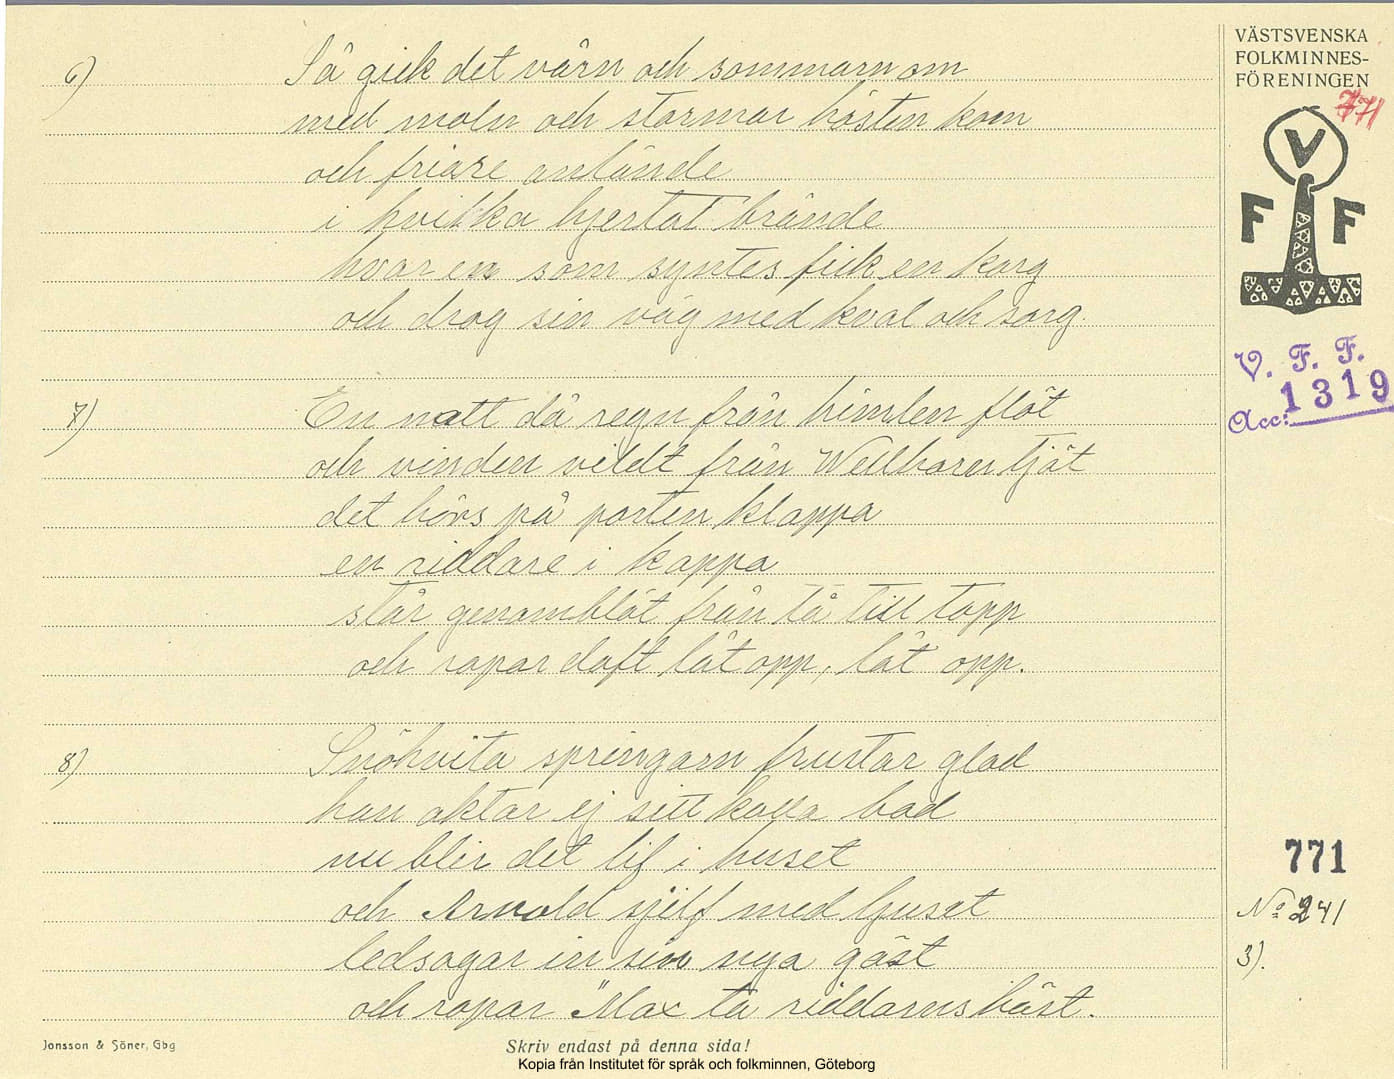 VÄSTSVENSKA
FOLKMINNES-
FÖRENINGEN
771
V
F F
V. F. F.
Acc: 1319
6) Så gick det vårn och sommarn om
med moln och stormar hösten kom
och friare anlände
i hvikka hjertat brände
hvar en som syntes fick en korg
och drog sin väg med kval och sorg.
7) En natt då regn från himlen flöt
och vinden vildt från Wellbaren tjöt
det hörs på porten klappa
en riddare i kappa
står genomblöt från tå till topp
och ropar doft låt opp, låt opp.
8) Snöhvita springarn frustar glad
han aktar ej sitt kalla bad
nu blir det lif i huset
och Arnold sjelf med ljuset
ledsagar in sin nya gäst
och ropar "Max ta riddarns häst.
771
No 241
3).
Jonsson & Söner, Gbg
Skriv endast på denna sida!
Kopia från Institutet för språk och folkminnen, Göteborg